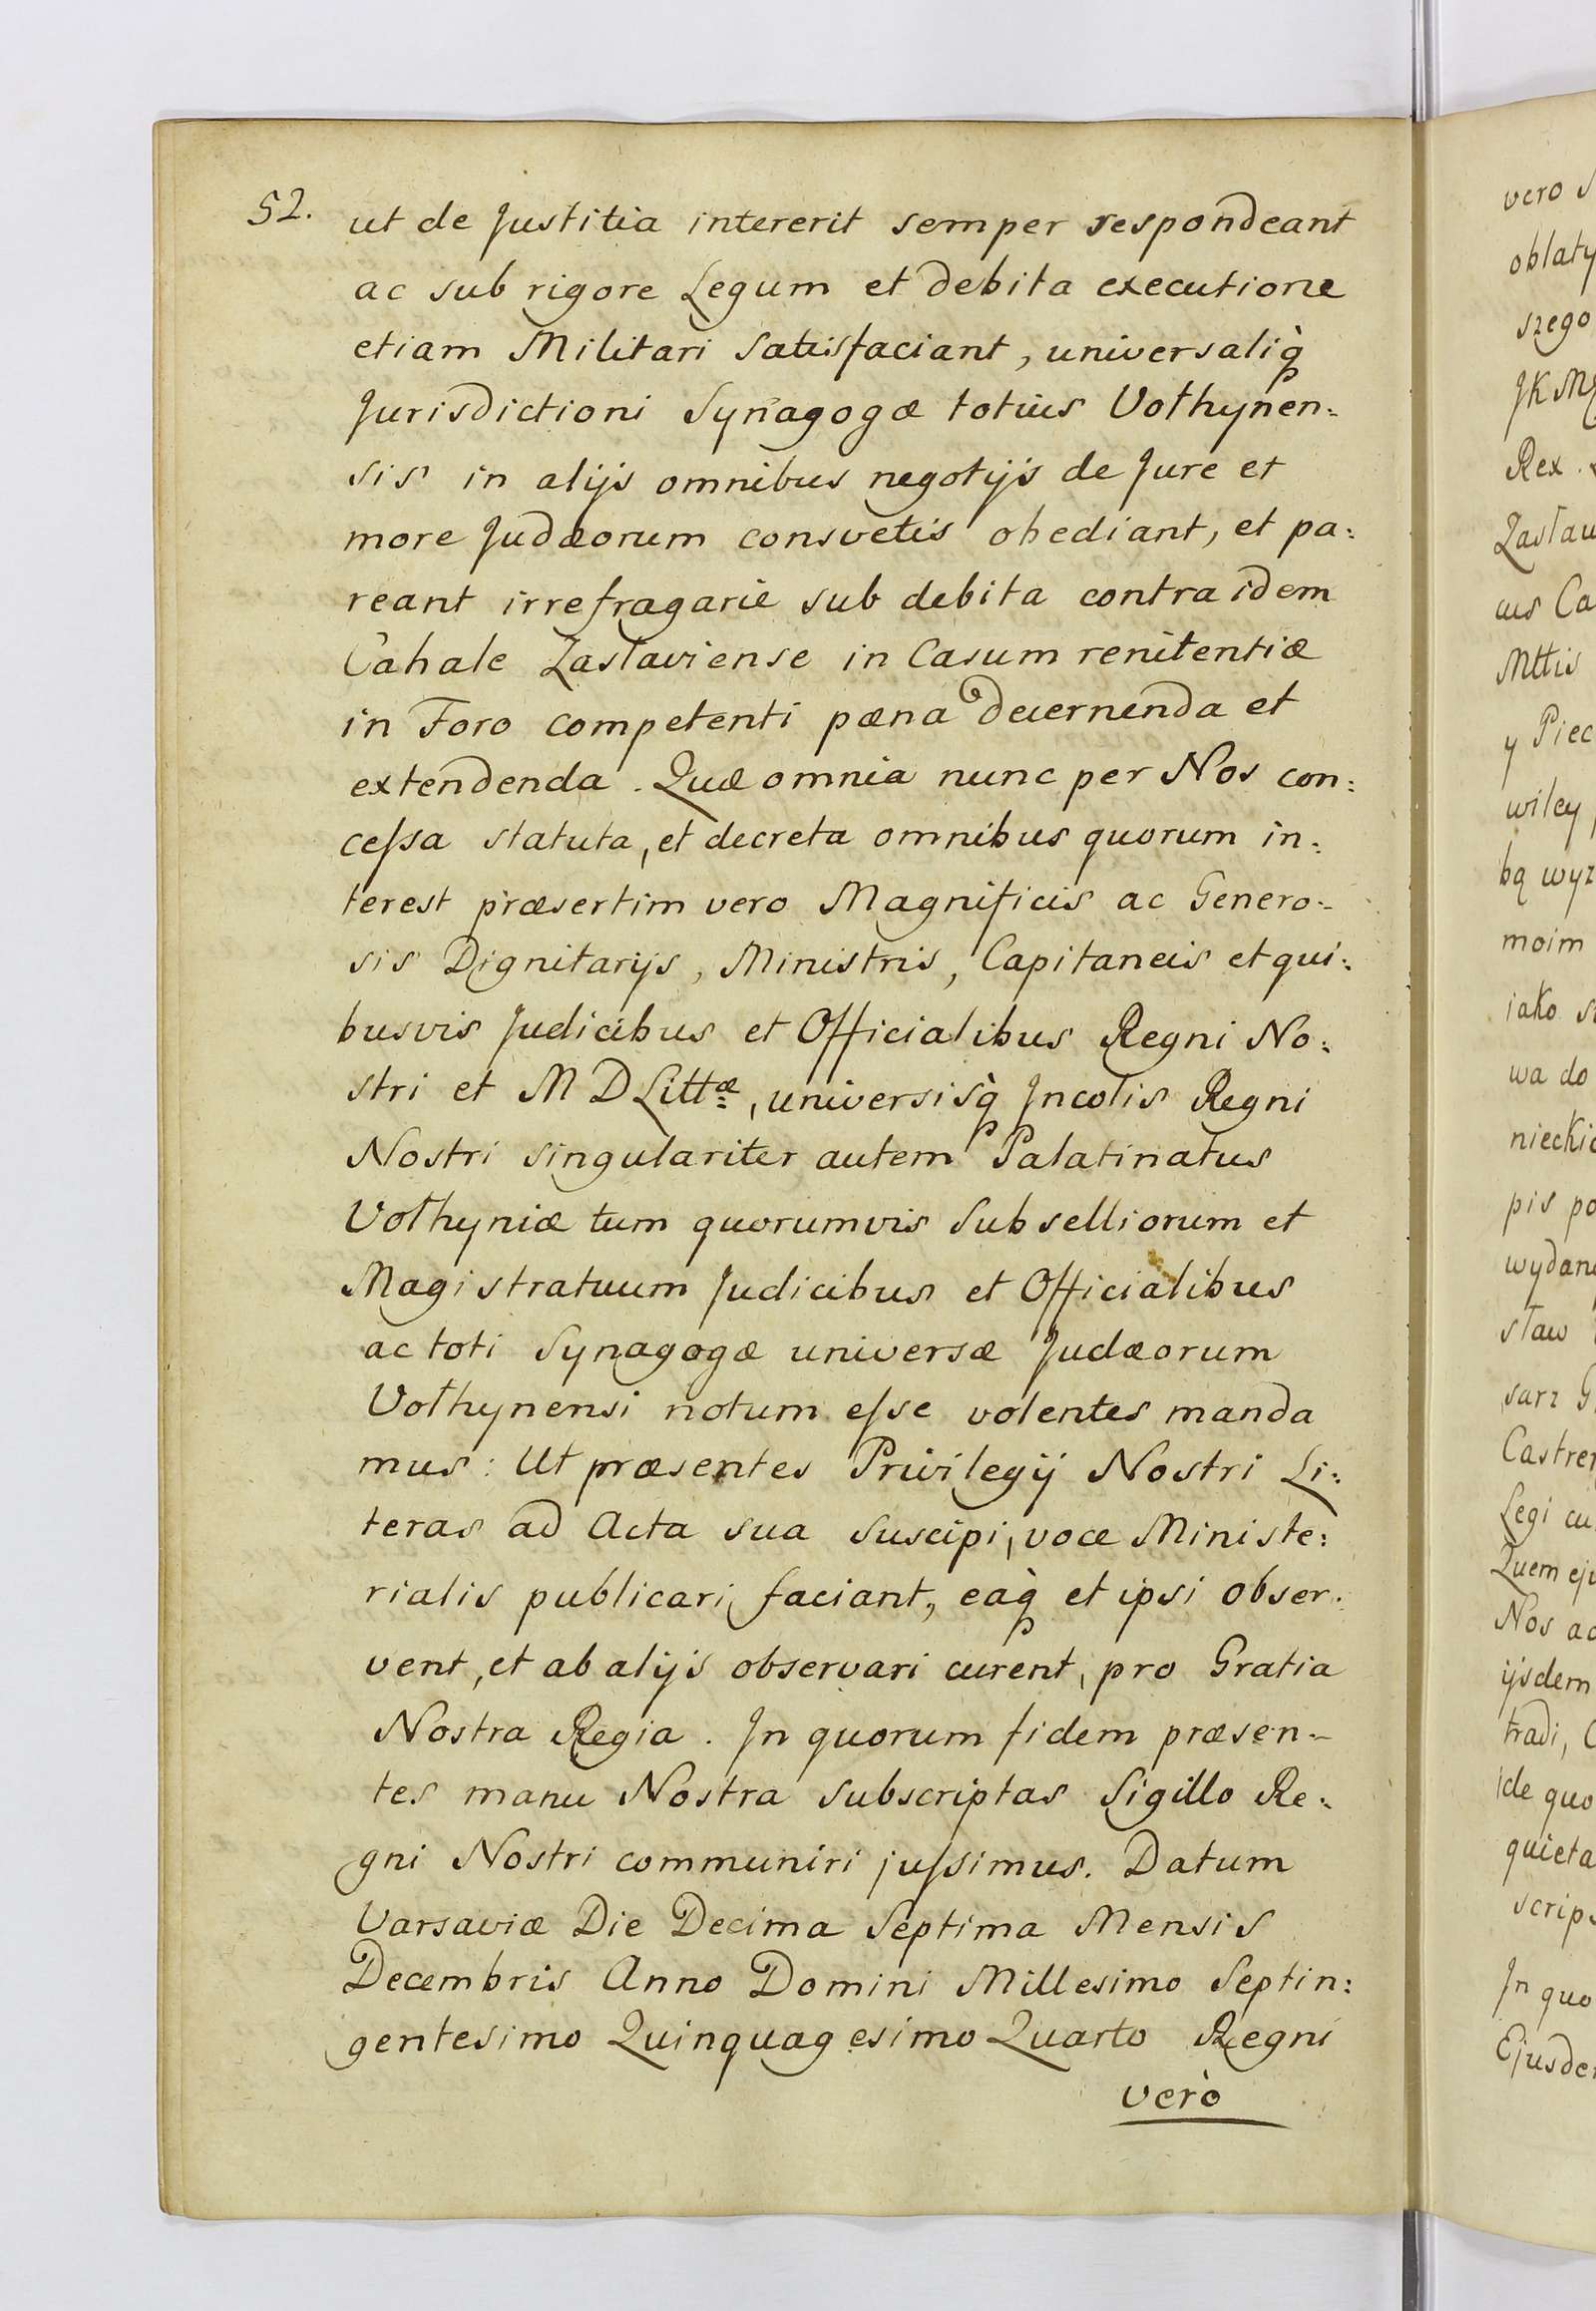 52.
ut de Justitia intererit semper respondeant
ac sub rigore Legum et debita executione
etiam Militari satisfaciant, universaliq̀
Jurisdictioni Synagogæ totius Vołhynen=
sis in alijs omnibus negotijs de Jure et
more Judæorum consvetis obediant, et pa=
reant irrefragarie sub debita contra idem
Cahale Zasłaviense in Casum renitentiæ
in Foro competenti pæna decernenda et
extendenda. Quæ omnia nunc per Nos con=
cessa statuta, et decreta omnibus quorum in=
terest præsertim vero Magnificis ac Genero=
sis Dignitarijs, Ministris, Capitaneis et qui=
busvis Judicibus et Officialibus Regni No=
stri et M D Littæ, universisq̀ Jncolis Regni
Nostri singulariter autem Palatinatus
Vołhyniæ tum quorumvis Subselliorum et
Magistratuum Judicibus et Officialibus
ac toti Synagogæ universæ Judæorum
Vołhynensi notum esse volentes manda
mus: Ut præsentes Privilegij Nostri Li=
teras ad Acta sua suscipi, voce Ministe=
rialis publicari faciant, eaq̀ et ipsi obser=
vent, et ab alijs observari curent, pro Gratia
Nostra Regia. Jn quorum fidem præsen=
tes manu Nostra subscriptas Sigillo Re=
gni Nostri communiri jussimus. Datum
Varsaviæ Die Decima Septima Mensis
Decembris Anno Domini Millesimo Septin=
gentesimo Quinquagesimo Quarto Regni
verò
vero
szego
Rex
Mttis
moim
iako
wa do
Legi
Quem
Nos
ijsdem
tradi,
de quo
Jn quo